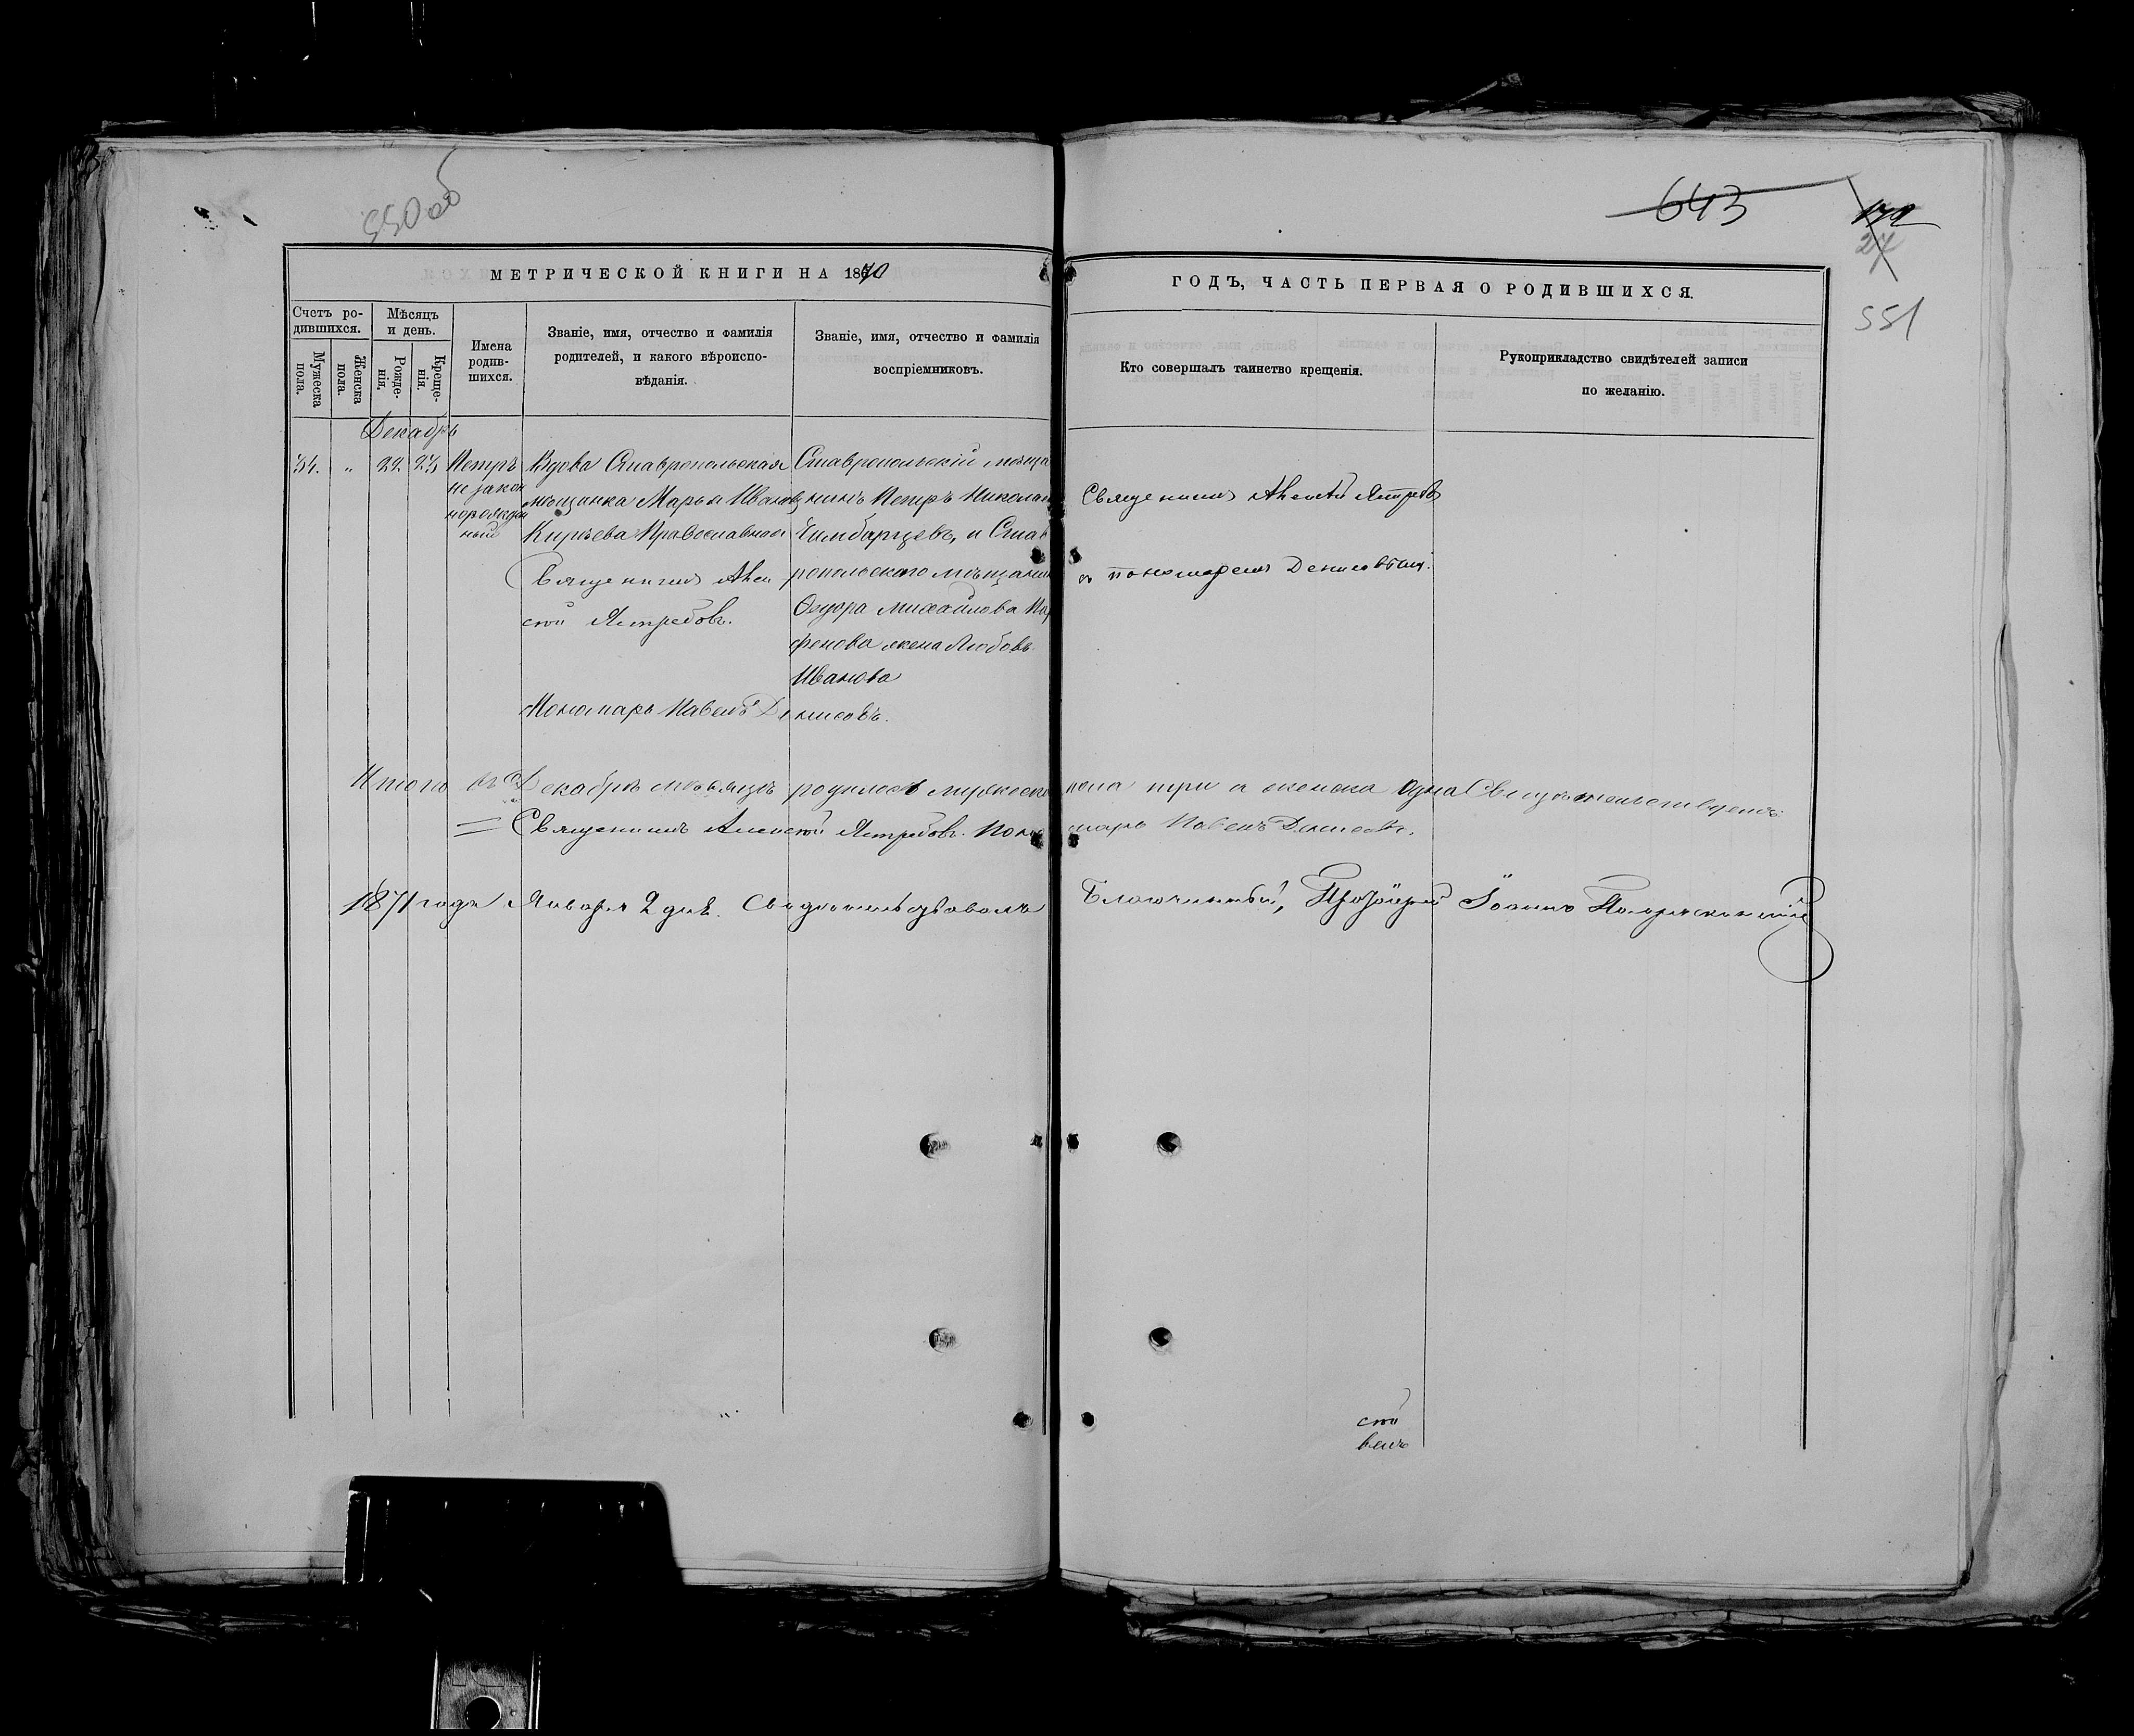 550 об
643
172
27
551
МЕТРИЧЕСКОЙ КНИГИ НА 1870
ГОДЪ, ЧАСТЬ ПЕРВАЯ О РОДИВШИХСЯ.
Счетъ ро-
дившихся.
Мужеска
пола.
Женска
пола.
Мѣсяцъ
и день.
Рожде-
нія.
Креще-
нія.
Имена
родив-
шихся.
Званіе, имя, отчество и фамилія
родителей, и какого вѣроиспо-
вѣданія.
Званіе, имя, отчество и фамилія
воспріемниковъ.
Кто совершалъ таинство крещенія.
Рукоприкладство свидѣтелей записи
по желанію.
Декабрь
34. „ 22 23
Петръ
незакон
норожден
ный
Вдова Ставропольская
мѣщанка Марья Иванов
Кирѣева Православная
Священникъ Алек
сій Ястребовъ.
Пономарь Павелъ Денисовъ.
Ставропольскій мѣща
нинъ Петръ Николаев
Чимбарцевъ, и Став
ропольскаго мѣщанина
Ѳедора Михайлова Пар
фенова жена Любовь
Иванова
Священникъ Алексѣй Ястребовъ
съ пономаремъ Денисовымъ.
Итого въ Декабрѣ мѣсяцѣ родилось мужеска пола три и женска одна
Священникъ Алексій Ястребовъ. Пономарь Павелъ Денисовъ.
1871 года Января 2 дня. Свидѣтельствовалъ Благочинный, Протоіерей Іоаннъ
сій
велъ